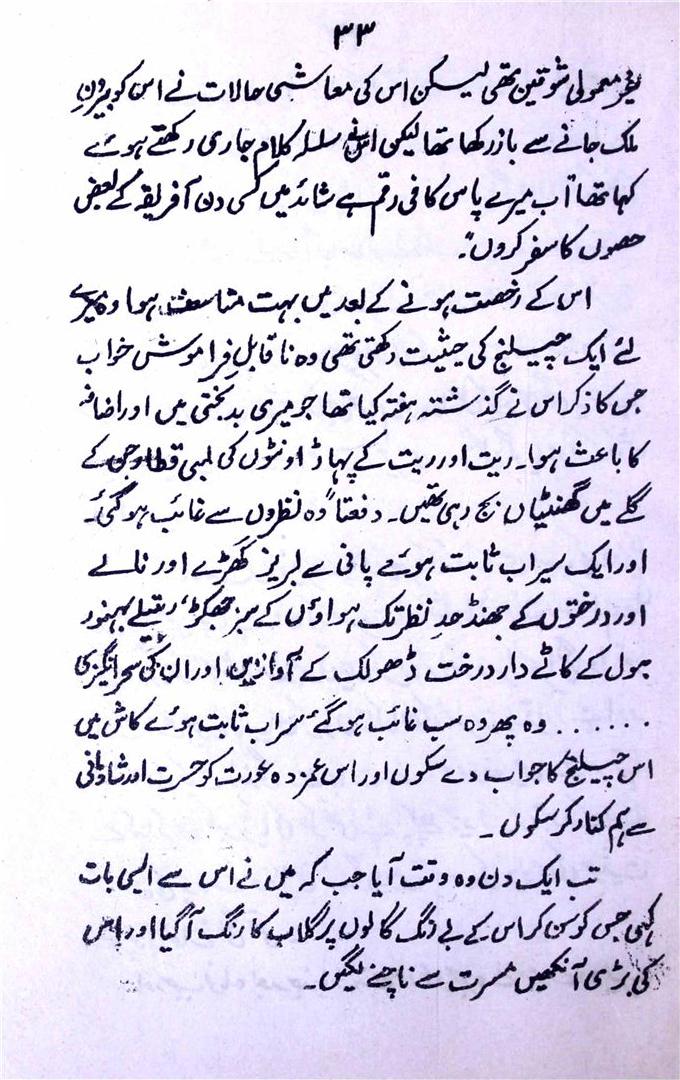 ۳۳
غیر معمولی شوقین تھی لیکن اس کی معاشی حالات نے اس کو بیرونِ
ملک جانے سے باز رکھا تھا لیکن اس نے سلسلہ کلام جاری رکھتے ہوئے
کہا تھا "اب میرے پاس کافی رقم ہے شائد میں کسی دن آفریقہ کے بعض
حصوں کا سفر کروں"۔
اس کے رخصت ہونے کے بعد میں بہت متاسف ہوا وہ میرے
لئے ایک چیلنج کی حیثیت رکھتی تھی وہ ناقابلِ فراموش خواب
جس کا ذکر اس نے گذشتہ ہفتہ کیا تھا جو میری بدبختی میں اور اضافہ
کا باعث ہوا۔ ریت اور ریت کے پہاڑ اونٹوں کی لمبی قطار جن کے
گلے میں گھنٹیاں بج رہی تھیں۔ دفعتاً وہ نظروں سے غائب ہو گئی۔
اور ایک سیراب ثابت ہوئے پانی سے لبریز گھڑے اور نالے
اور درختوں کے جھنڈ حدِ نظر تک ہواؤں کے سبز جھکڑ، ریتیلے بھنور
ببول کے کانٹے دار درخت ڈھولک کے آوازیں اور ان کی سحر انگیزی
. . . . . . وہ پھر وہ سب غائب ہو گئے سراب ثابت ہوئے کاش میں
اس چیلنج کا جواب دے سکوں اور اس غمزدہ عورت کو حسرت اور شادمانی
سے ہم کنار کر سکوں ۔
تب ایک دن وہ وقت آیا جب کہ میں نے اس سے ایسی بات
کہی جس کو سن کر اس کے بے رنگ گالوں پر گلاب کا رنگ آگیا اور اس
کی بڑی آنکھیں مسرت سے ناچنے لگیں ۔